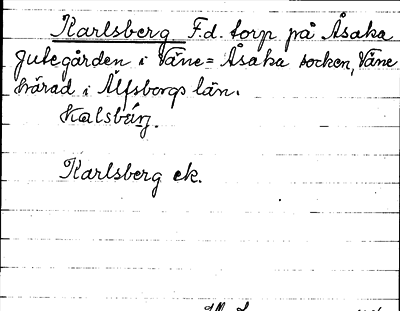 Karlsberg F.d. torp på Åsaka
Jutegården i Väne=Åsaka socken, Väne
härad i Älfsborgs län.
Kalsbärj.
Karlsberg ek.